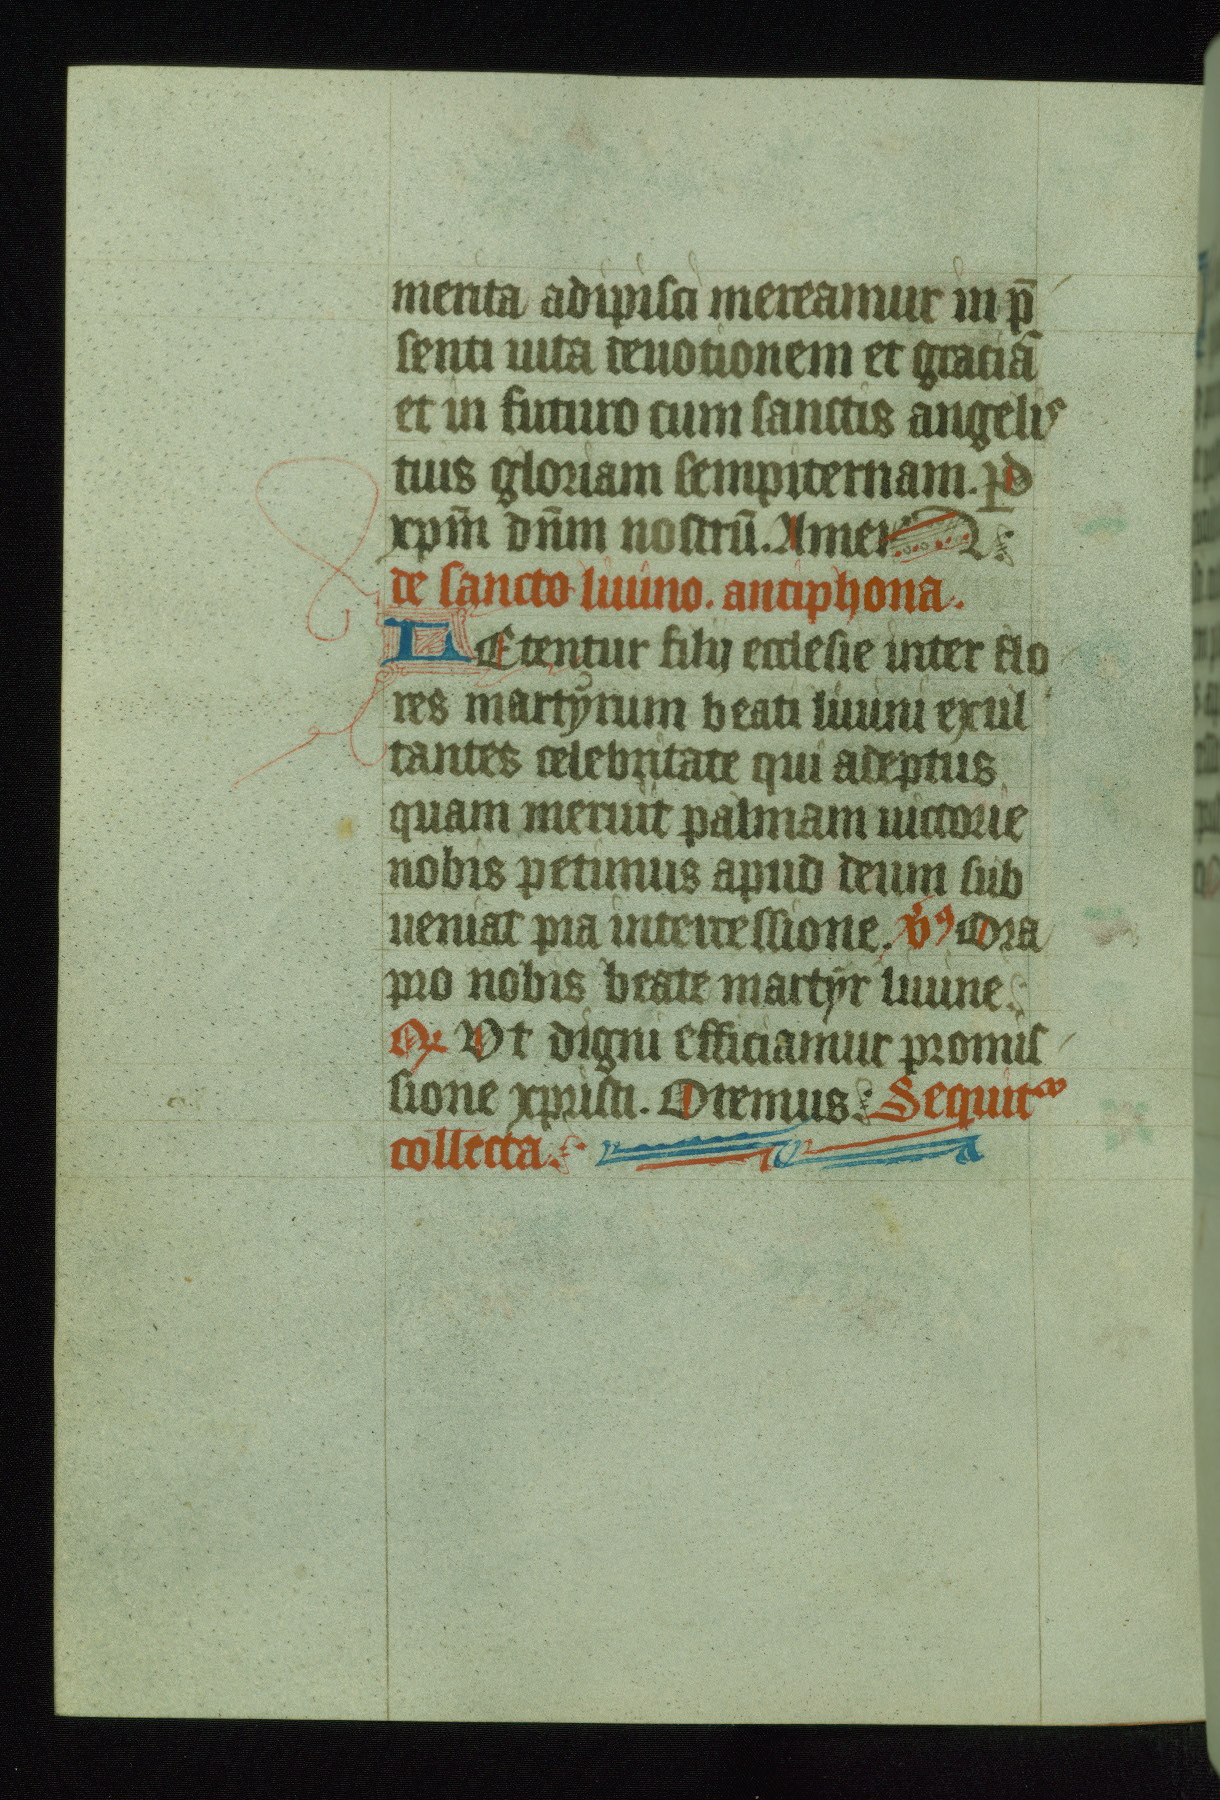 merita adipisci mereamur in p̄
senti uita deuotionem et graciā
et in futuro cum sanctis angelis
tuis gloriam sempiternam. p̱d
xp̄m dn̄m nostrū. Amen
de sancto liuino. antiphona.
LEtentur filij ecclesie inter flo
res martyrum beati liuini exul
tantes celebritate qui adeptus
quam meruit palmam uictorie
nobis petimus apud deum sub
ueniat pia intercessione. v̉ꝰ Ora
pro nobis beate martyr liuine.
R̷ Vt digni efficiamur promis
sione xpristi. Oremus. Sequit᷑
collecta.